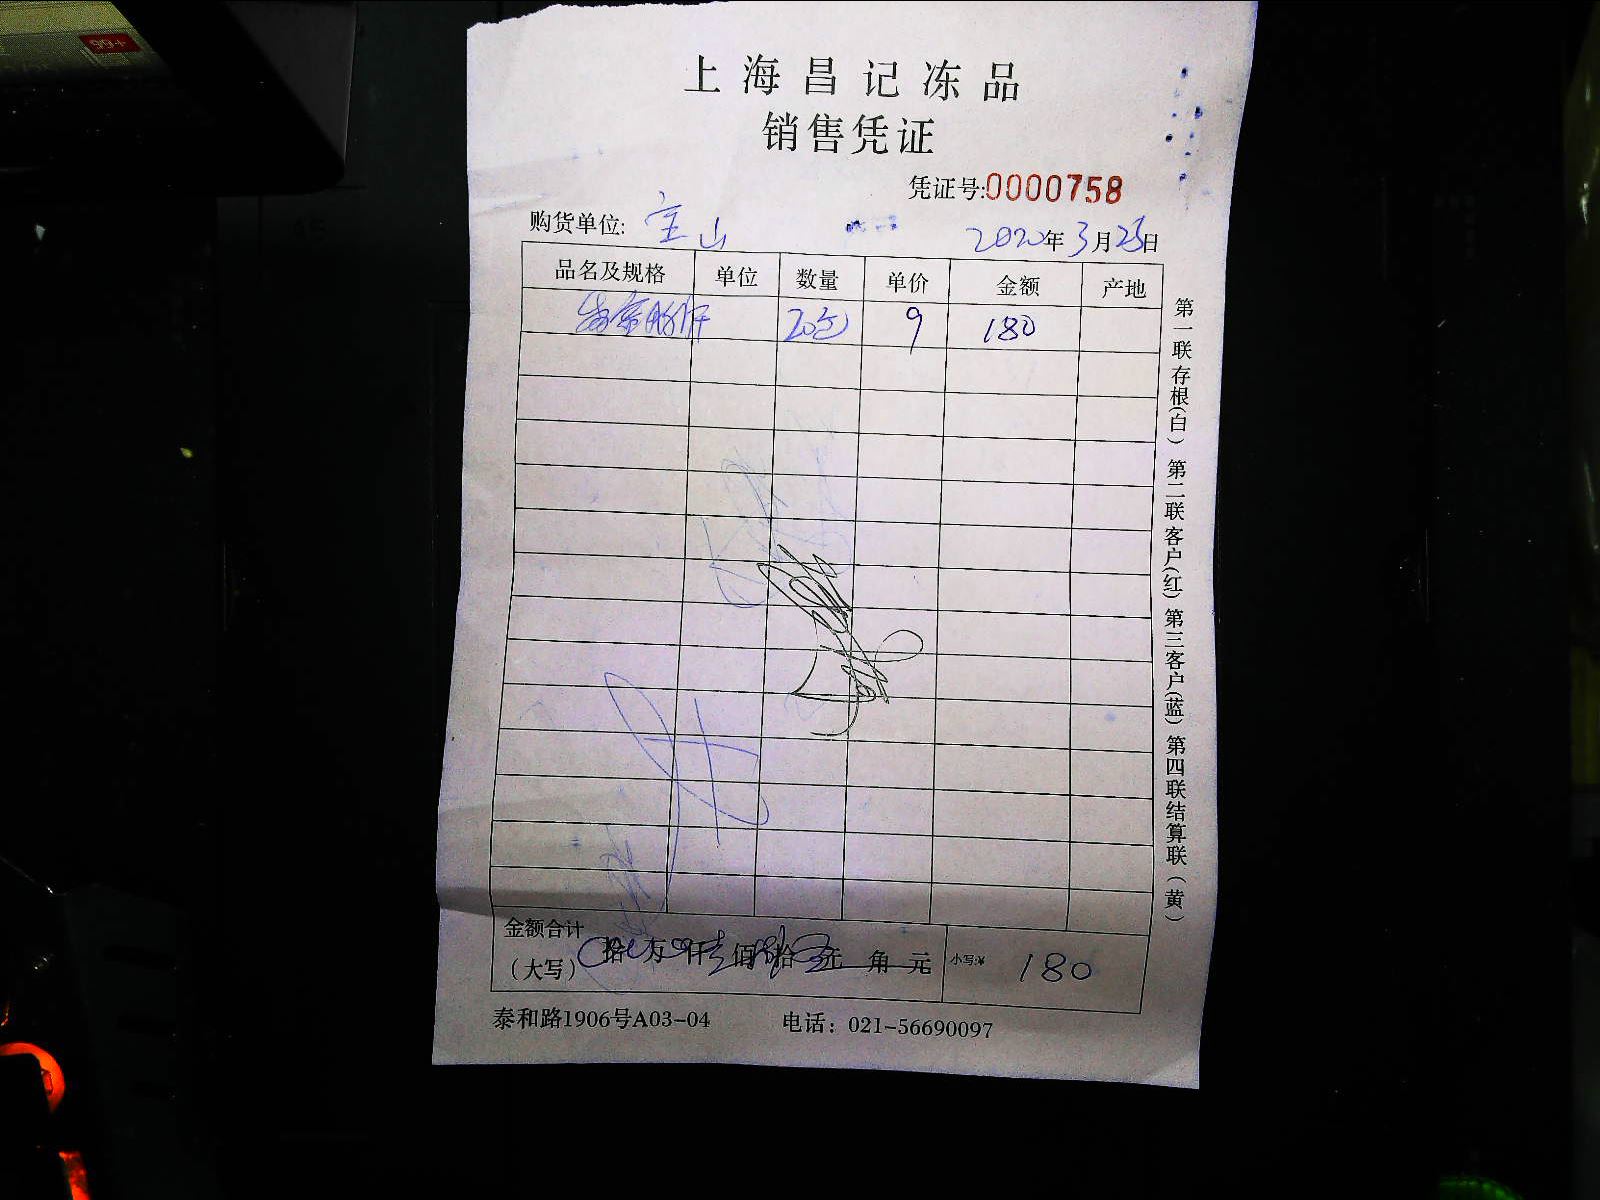 上海昌记冻品
销售凭证
凭证号:0000758
购货单位: 宝山 2020年3月25日
品名及规格 单位 数量 单价 金额 产地
20包 9 180
第一联存根(白) 第二联客户(红) 第三客户(蓝) 第四联结算联(黄)
金额合计
(大写) 拾 万 仟 壹 佰 捌 拾 元 角 元 小写:¥ 180
泰和路1906号A03-04 电话: 021-56690097